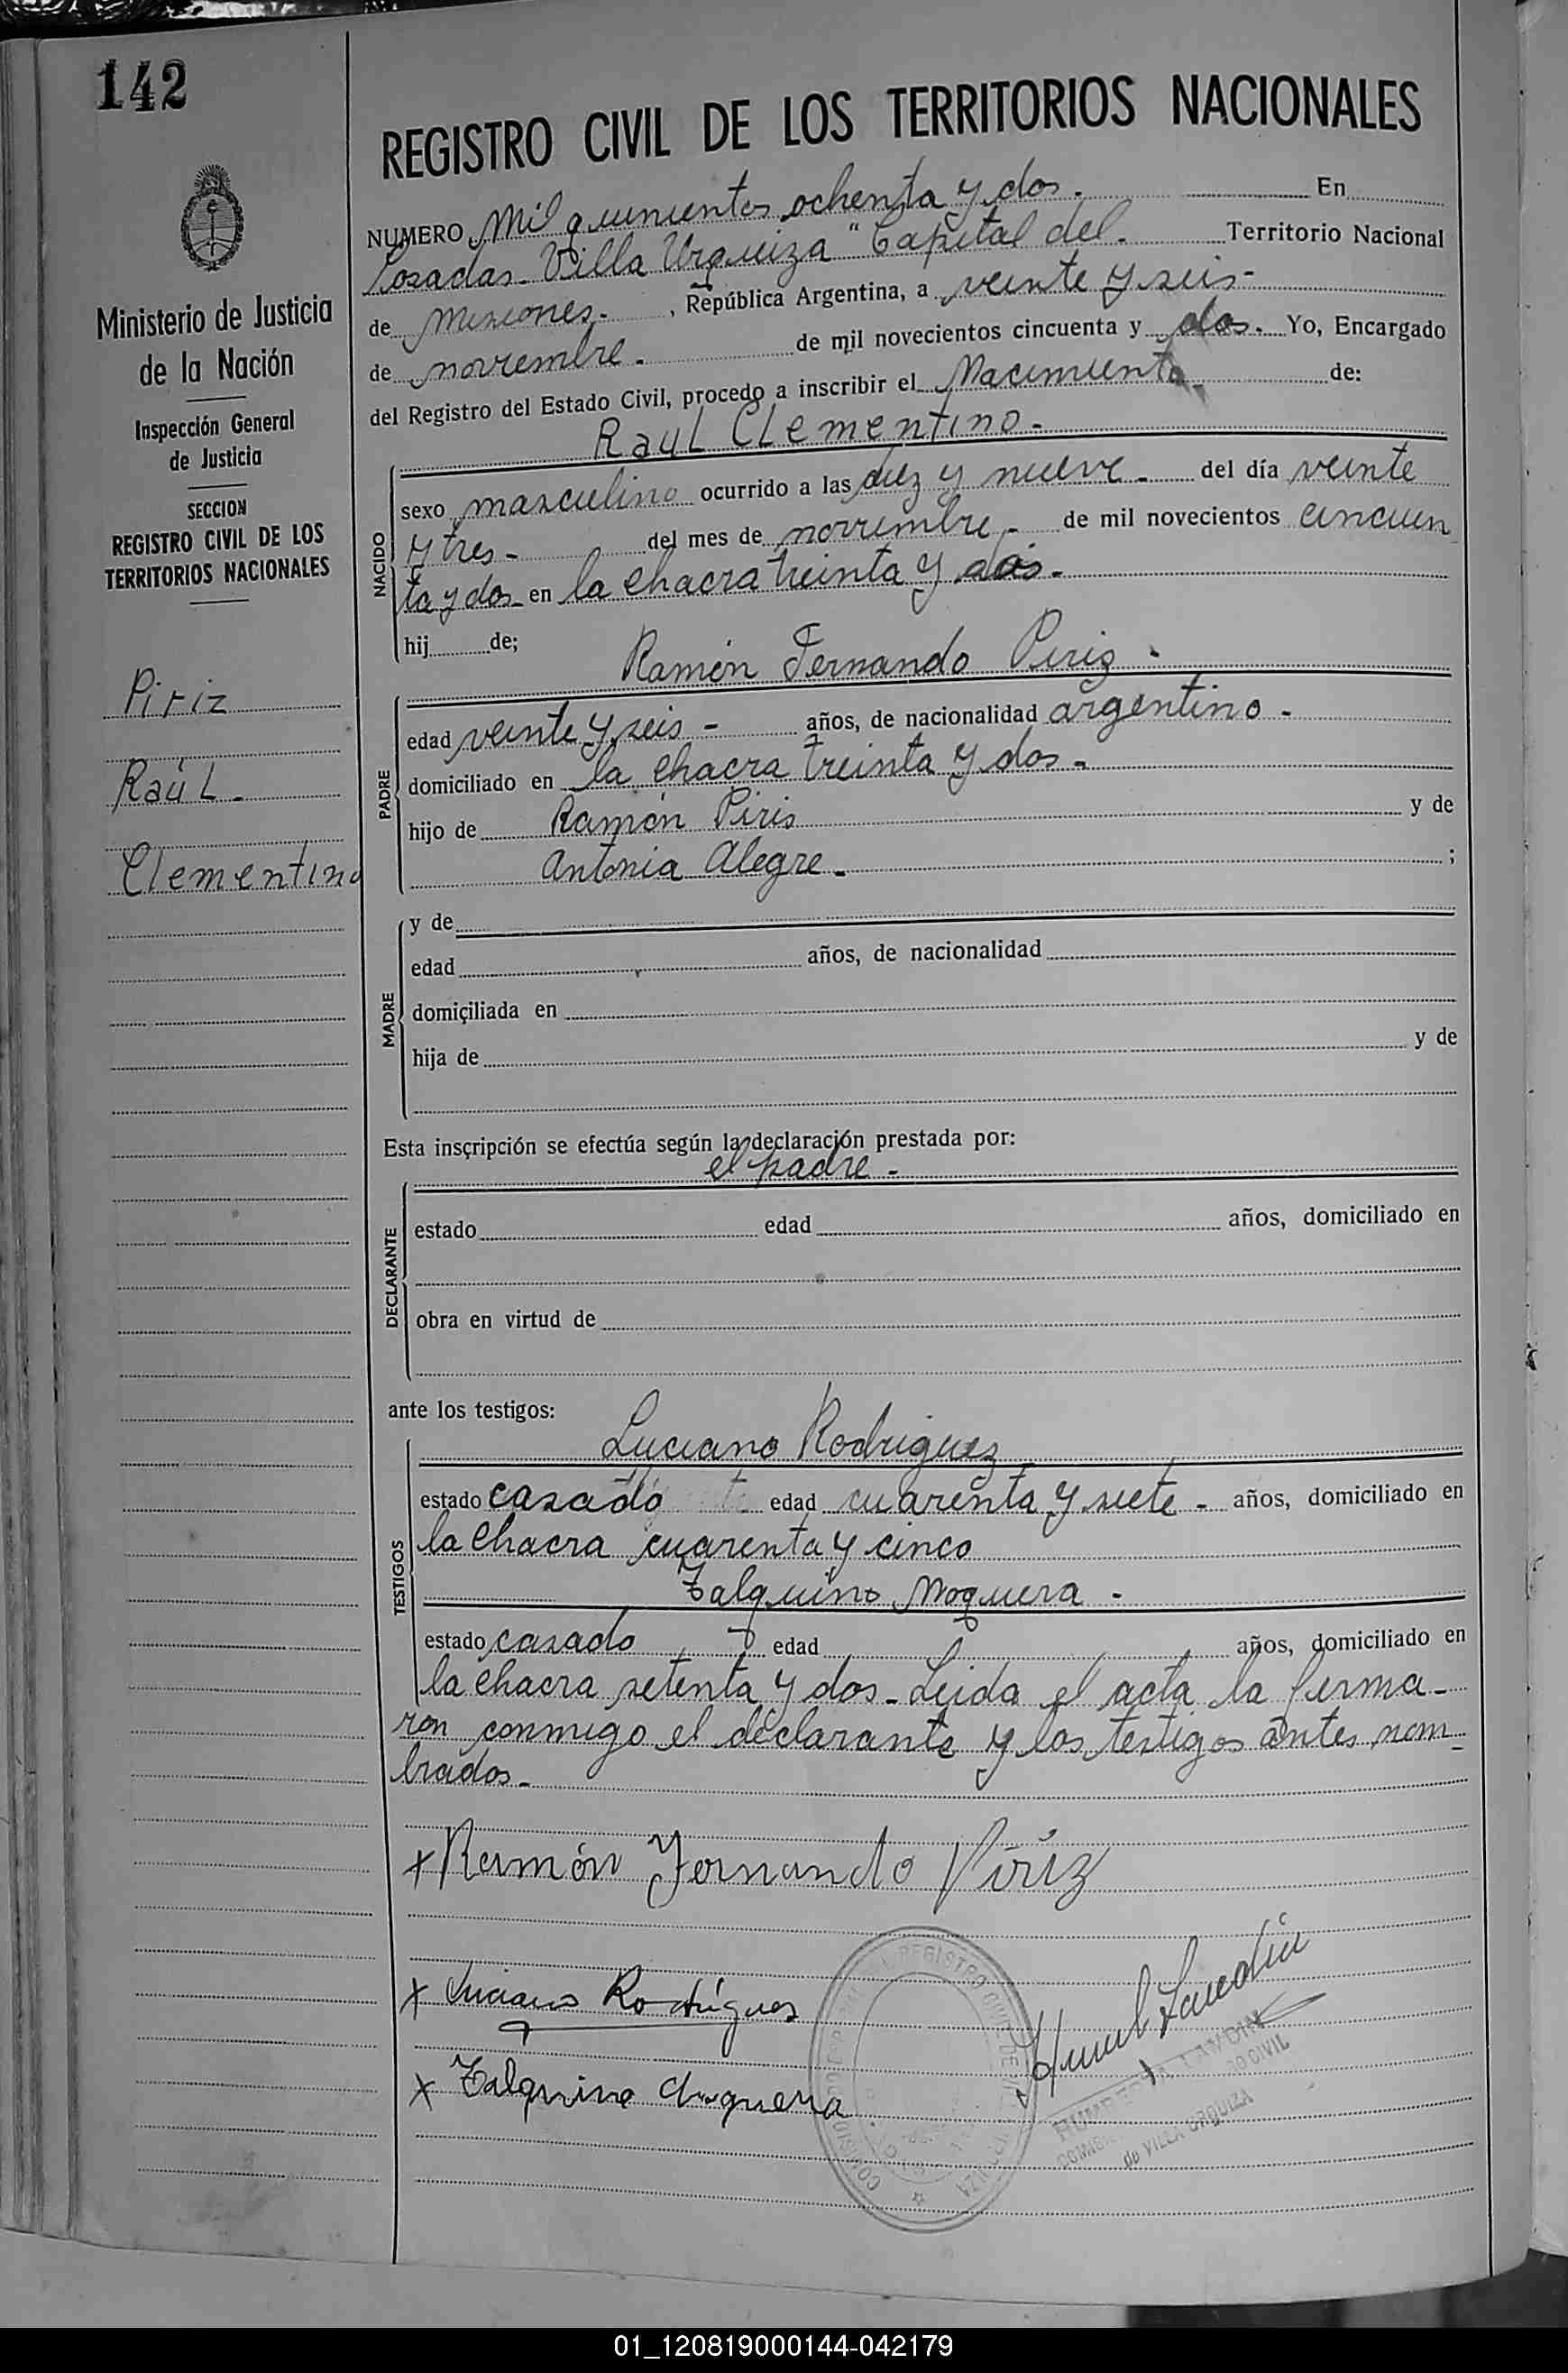 142
REGISTRO CIVIL DE LOS TERRITORIOS NACIONALES
NUMERO Mil quinientos ochenta y dos. En
Posadas. Villa Urquiza "Capital del. Territorio Nacional
de Misiones. , República Argentina, a veinte y seis-
de noviembre. de mil novecientos cincuenta y dos. Yo, Encargado
del Registro del Estado Civil, procedo a inscribir el Nacimiento de:
Raul Clementino.
sexo masculino ocurrido a las diez y nueve - del día veinte
y tres - del mes de noviembre - de mil novecientos cincuen
ta y dos - en la chacra treinta y dos.
hij de;
NACIDO
Ramón Fernando Piriz.
edad veinte y seis - años, de nacionalidad argentino -
domiciliado en la chacra treinta y dos -
hijo de Ramón Piris y de
Antonia Alegre - ;
PADRE
y de
edad años, de nacionalidad
domiciliada en
hija de y de
MADRE
Esta inscripción se efectúa según la declaración prestada por:
el padre -
estado edad años, domiciliado en
obra en virtud de
DECLARANTE
ante los testigos:
Luciano Rodriguez
estado casado edad cuarenta y siete - años, domiciliado en
la chacra cuarenta y cinco
Talquino Noguera -
estado casado edad años, domiciliado en
la chacra setenta y dos - Leida el acta la firma-
ron conmigo el declarante y los testigos antes nom
brados -
TESTIGOS
x Ramón Fernando Piriz
x Luciano Rodrigues
x Talquino Noguera
REGISTRO CIVIL DE
de VILLA URQUIZA
Ministerio de Justicia
de la Nación
Inspección General
de Justicia
SECCION
REGISTRO CIVIL DE LOS
TERRITORIOS NACIONALES
Piriz
Raúl -
Clementino
01_120819000144-042179